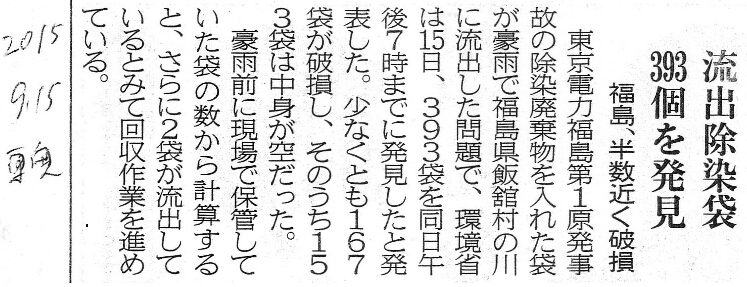 流出除染袋
393個を発見
福島、半数近く破損
東京電力福島第1原発事
故の除染廃棄物を入れた袋
が豪雨で福島県飯舘村の川
に流出した問題で、環境省
は15日、393袋を同日午
後7時までに発見したと発
表した。少なくとも167
袋が破損し、そのうち15
3袋は中身が空だった。
豪雨前に現場で保管して
いた袋の数から計算する
と、さらに2袋が流出して
いるとみて回収作業を進め
ている。
2015
9.15